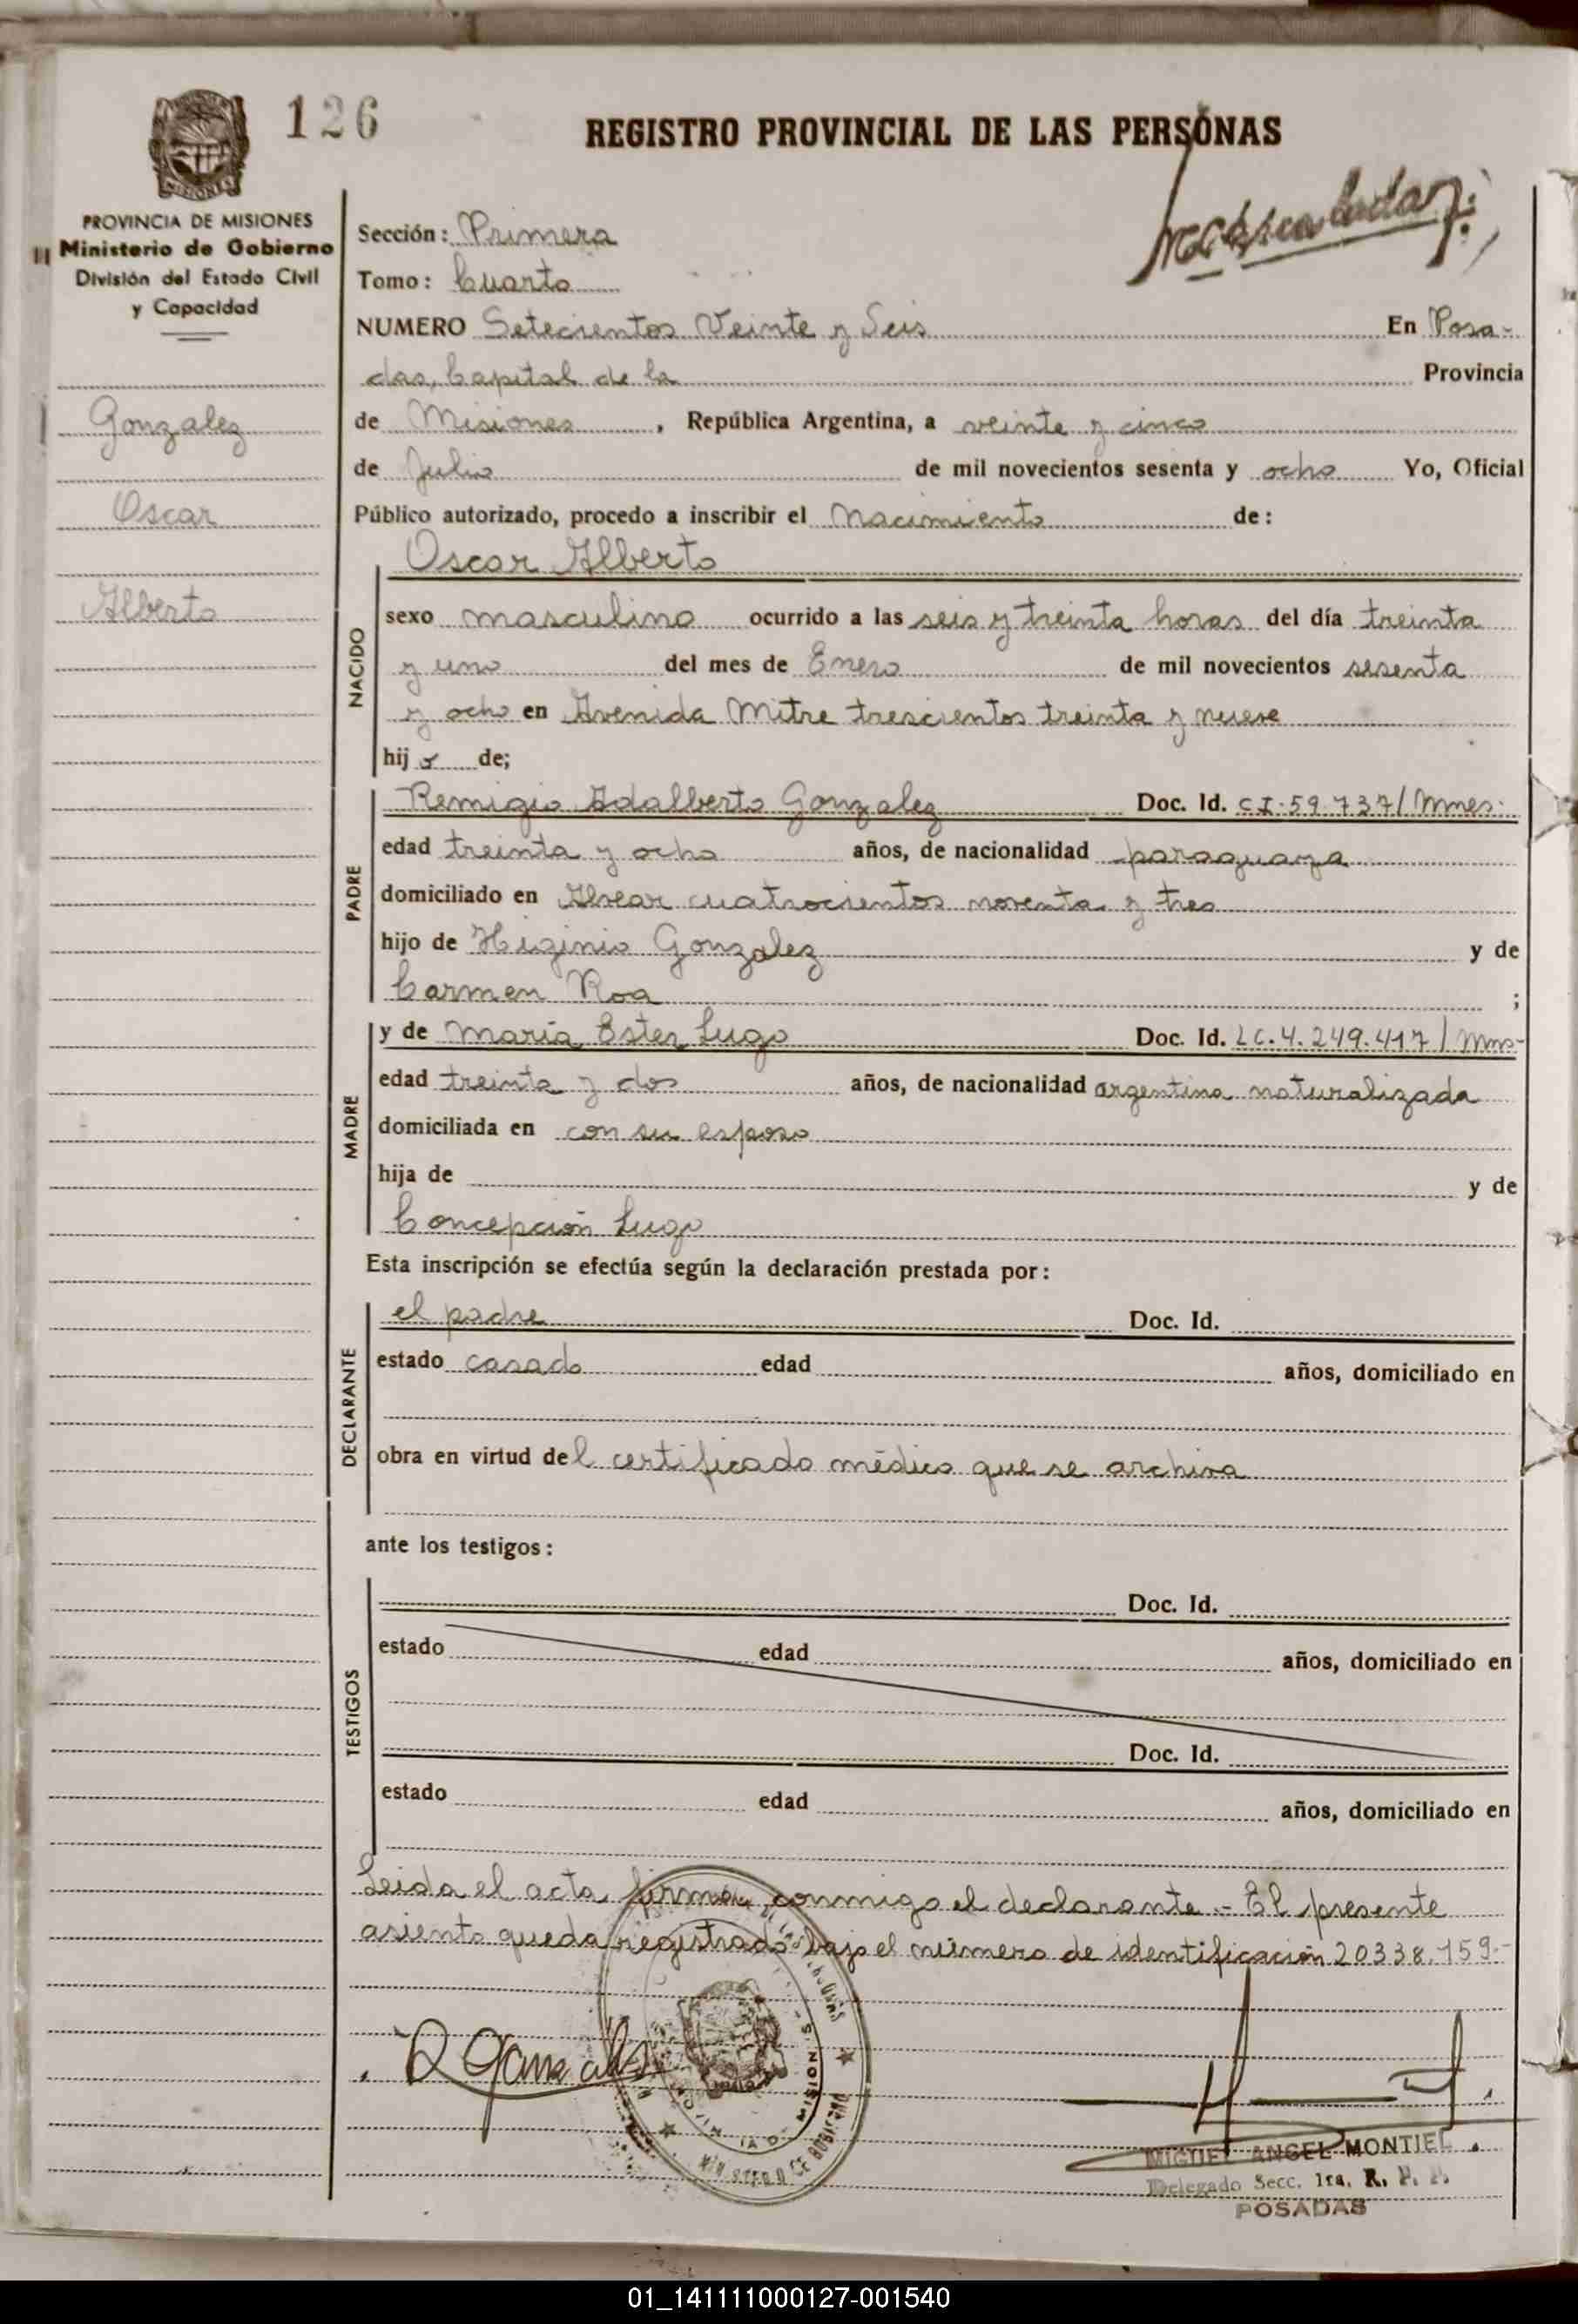 126
REGISTRO PROVINCIAL DE LAS PERSONAS
MISIONES
PROVINCIA DE MISIONES
Ministerio de Gobierno
División del Estado Civil
y Capacidad
Gonzalez
Oscar
Alberto
Sección: Primera
Tomo: Cuarto
NUMERO Setecientos Veinte y Seis En Posa-
das, Capital de la Provincia
de Misiones, República Argentina, a veinte y cinco
de Julio de mil novecientos sesenta y ocho Yo, Oficial
Público autorizado, procedo a inscribir el Nacimiento de:
Oscar Alberto
NACIDO
sexo masculino ocurrido a las seis y treinta horas del día treinta
y uno del mes de Enero de mil novecientos sesenta
y ocho en Avenida Mitre trescientos treinta y nueve
hijo de;
PADRE
Remigio Adalberto Gonzalez Doc. Id. C.I. 59.737/Mnes.
edad treinta y ocho años, de nacionalidad paraguaya
domiciliado en Alvear cuatrocientos noventa y tres
hijo de Higinio Gonzalez y de
Carmen Roa ;
MADRE
y de María Ester Lugo Doc. Id. LC. 4.249.417/Mns-
edad treinta y dos años, de nacionalidad argentina naturalizada
domiciliada en con su esposo
hija de y de
Concepción Lugo
Esta inscripción se efectúa según la declaración prestada por:
DECLARANTE
el padre Doc. Id.
estado casado edad años, domiciliado en
obra en virtud del certificado médico que se archiva
ante los testigos:
TESTIGOS
Doc. Id.
estado edad años, domiciliado en
Doc. Id.
estado edad años, domiciliado en
Leida el acta, firma conmigo el declarante.- El presente
asiento queda registrado bajo el número de identificación 20338.159.-
R Gonzalez
MINISTERIO DE GOBIERNO
MIGUEL ANGEL MONTIEL
Delegado Secc. 1ra. R. P. P.
POSADAS
01_141111000127-001540